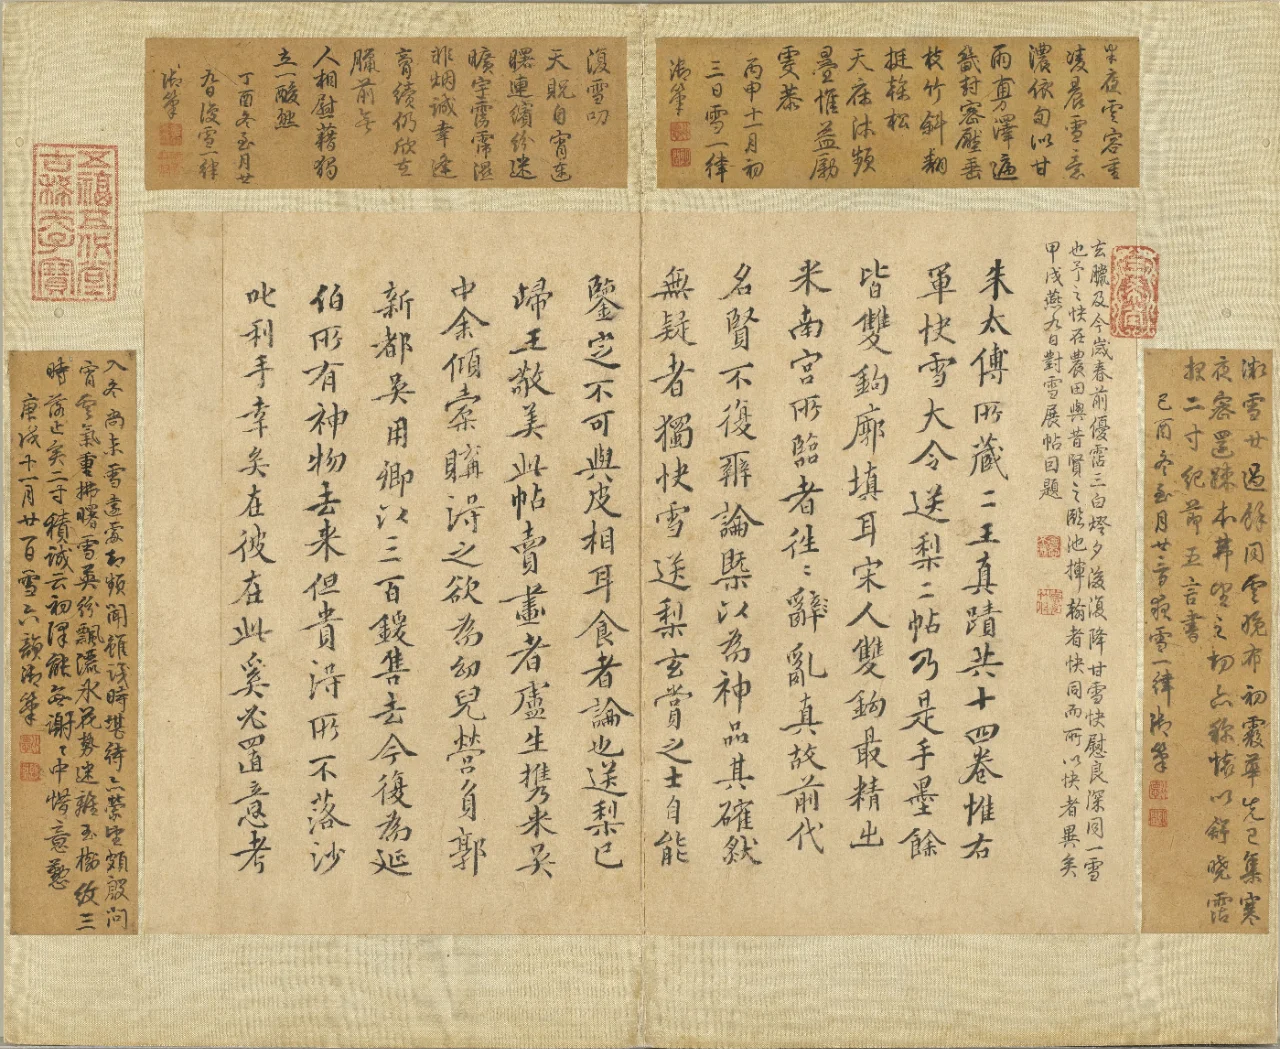 半夜雲容重
凌晨雪意
濃依旬似甘
雨夏澤遍
畿封密壓垂
枝竹斜翻
挺榦松
天庥沐頻
疊惟益勵
虔恭
丙申十一月初
三日雪一律
御筆
復雪叨
天貺自宵達
曙連繽紛迷
曠宇霑霈溼
非烟誠幸逢
膏續仍欣在
臘前無
人相慰藉獨
立一酸然
丁酉冬至月廿
九日復雪一律
御筆
雪廿過餘同雲晚布初霰華先已集寒
夜密還踈本弗望之切亦稱懷以舒曉霑
報二寸紀節五言書
己酉冬至月廿二日夜雪一律御筆
玄臘及今歲春前優霑三白燈夕後復降甘雪快慰良深同一雪
也予之快在農田與昔賢之臨池揮翰者快同而所以快者異矣
甲戌燕九日對雪展帖因題
朱太傅所藏二王真蹟共十四卷惟右
軍快雪大令送梨二帖乃是手墨餘
皆雙鉤廓填耳宋人雙鉤最精出
米南宮所臨者往〻辭亂真故前代
名賢不復辨論槩以為神品其確然
無疑者獨快雪送梨玄賞之士自能
鑒定不可與皮相耳食者論也送梨已
歸王敬美此帖賣畫者盧生攜來吳
中余傾橐購得之欲為幼兒營負郭
新都吳用卿以三百鍰售去今復為延
伯所有神物去來但貴得所不落沙
叱利手幸矣在彼在此奚必置意考
入冬尚未雪遠處却頻聞雖識時堪待亦縈望頗殷問
宵雲氣重拂曙雪英紛飄灑冰花勢迷離玉樹紋三
時落止矣二寸積誠云初澤能無謝〻中惜意懃
庚戌十一月廿一日雪六韻御筆
五福五代堂
古稀天子寶